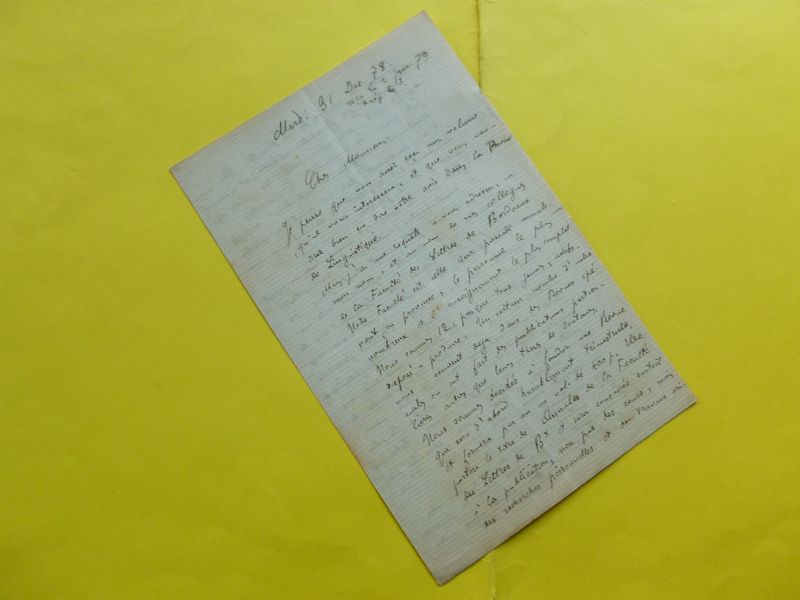 Mardi 31 Dec. 78.
reçu le 2 janv. 79
rép. le 3.
Cher Monsieur,
Je pense que vous aurez reçu mon volume
qu'il vous intéressera, et que vous vou-
drez bien en dire votre avis dans la Revue
de Linguistique.
Mais j'ai une requête à vous adresser, en
mon nom, et au nom de mes collègues
de la Faculté des Lettres de Bordeaux
Notre Faculté est celle qui possède mainte-
nant en province, le personnel le plus
nombreux et l'enseignement le plus complet
Nous sommes 12, presque tous jeunes, actifs,
disposés à produire. Un certain nombre d'entre
nous écrivent déjà dans des Revues spé-
ciales ou ont fait des publications particu-
lières autres que leurs thèses de doctorat.
Nous sommes décidés à fonder une Revue
qui sera d'abord trimestrielle,
et formera par an un vol. de 400 p. Elle
portera le titre de Annales de la Faculté
des Lettres de Bx et sera consacrée surtout
à la publication, non pas des cours, mais
des recherches personnelles et des travaux